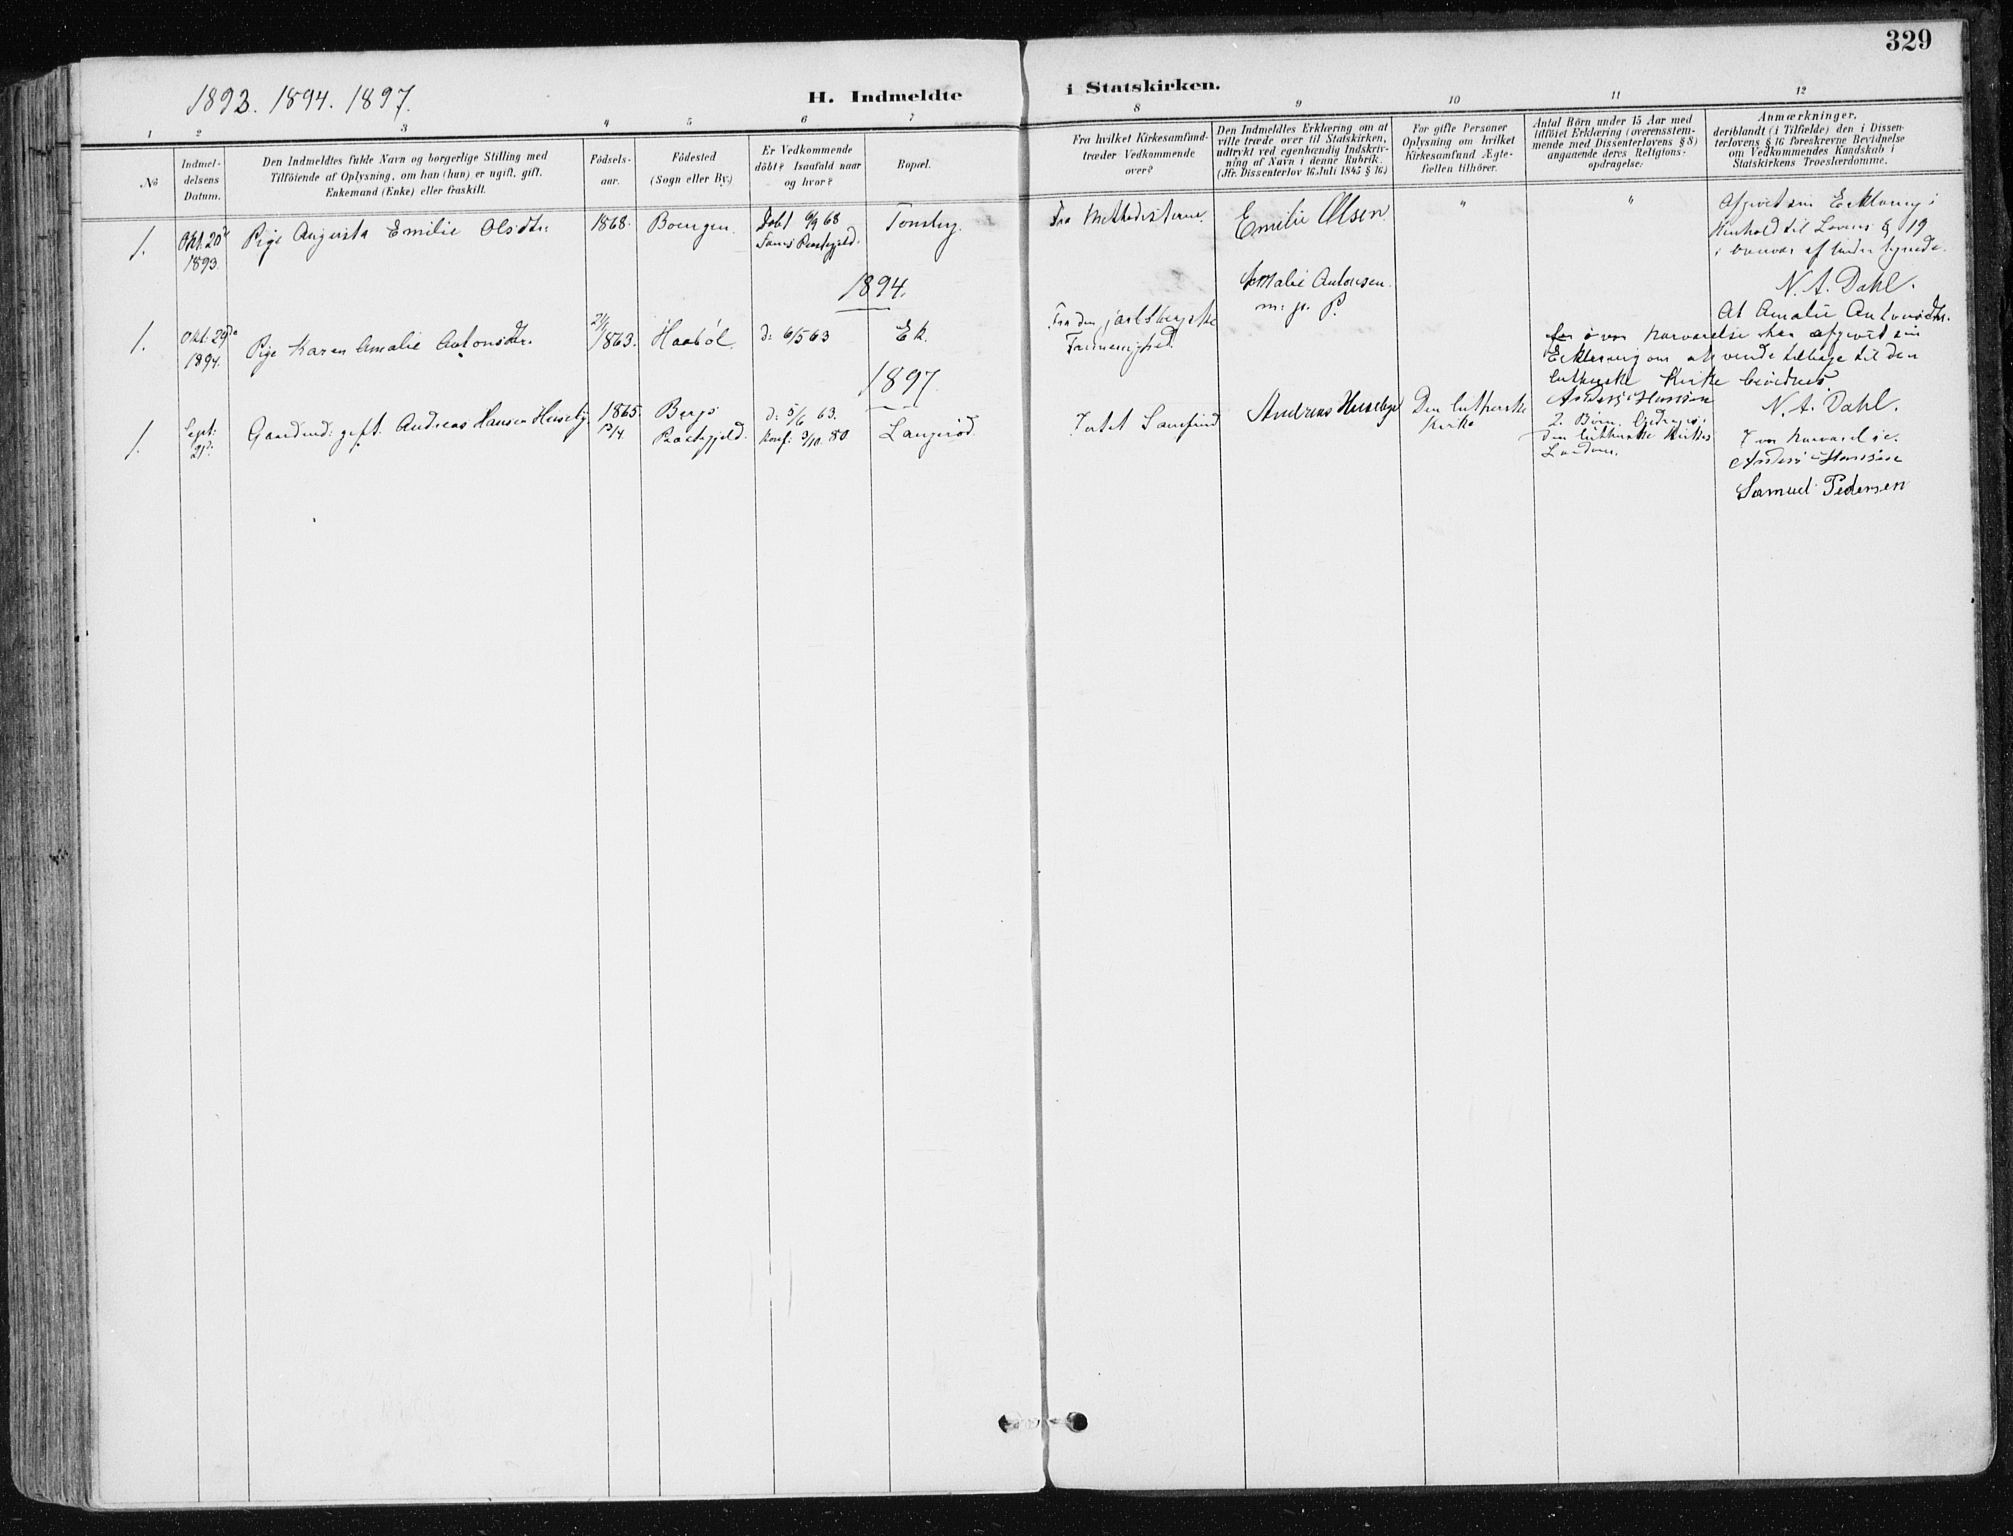 329
1893. 1894. 1897.
H. Indmeldte i Statskirken.
1 2 3 4 5 6 7 8 9 10 11 12
No
Indmel-
delsens
Datum.
Den Indmeldtes fulde Navn og borgerlige Stilling med
Tilföiende af Oplysning, om han (hun) er ugift, gift,
Enkemand (Enke) eller fraskilt.
Födsels-
aar.
Födested
(Sogn eller By.)
Er Vedkommende
döbt? Isaafald naar
og hvor?
Bopæl.
Fra hvilket Kirkesamfund-
træder Vedkommende
over?
Den Indmeldtes Erklæring om at
ville træde over til Statskirken,
udtrykt ved egenhændig Indskriv-
ning af Navn i denne Rubrik.
(Jfr. Dissenterlov 16. Juli 1845 § 16.)
For gifte Personer
Oplysning om hvilket
Kirkesamfund Ægte-
fællen tilhörer.
Antal Börn under 15 Aar med
tilföiet Erklæring (overensstem-
mende med Dissenterlovens § 8)
angaaende deres Religions-
opdragelse:
Anmærkninger,
deriblandt (i Tilfælde) den i Dissen-
terlovens § 16 foreskrevne Bevidnelse
om Vedkommendes Kundskab i
Statskirkens Troeslærdomme.
1.
Okt. 20de
1893.
Pige Augusta Emilie Olsdtr.
1868.
Döbt 6/9 68
Præstegjeld.
Tonsby.
Fra Methodisterne.
Emilie Olsen
"
"
Afgivet sin Erklæring i
Henhold til Lovens § 19
i overvær af Undertegnede.
N. A. Dahl.
1894.
1.
Okt. 29de
1894.
Pige Karen Amalie Antonsdtr.
1863.
Haabøl.
d: 6/5 63
Ek.
Fra den jarlsbergske
Frimenighed.
Amalie Antonsen
m. p. P.
At Amalie Antonsdtr.
i vor Nærværelse har afgivet sin
Erklæring om at vende tilbage til den
lutherske Kirke bevidnes.
N. A. Dahl.
Anders Hansen
1897.
1.
Sept:
Gaardmd: gift. Andreas Hansen Huseby
1865.
13/4.
Bergs
Præstegjeld.
d: 5/6 63.
Konf: 3/10. 80
Langerød
Intet Samfund
Andreas Huseby
Den lutherske
Kirke
2. Børn. Opdrages i
den lutherske Kirkes
Lærdom.
I vor Nærværelse.
Anders Hansen
Samuel Pedersen